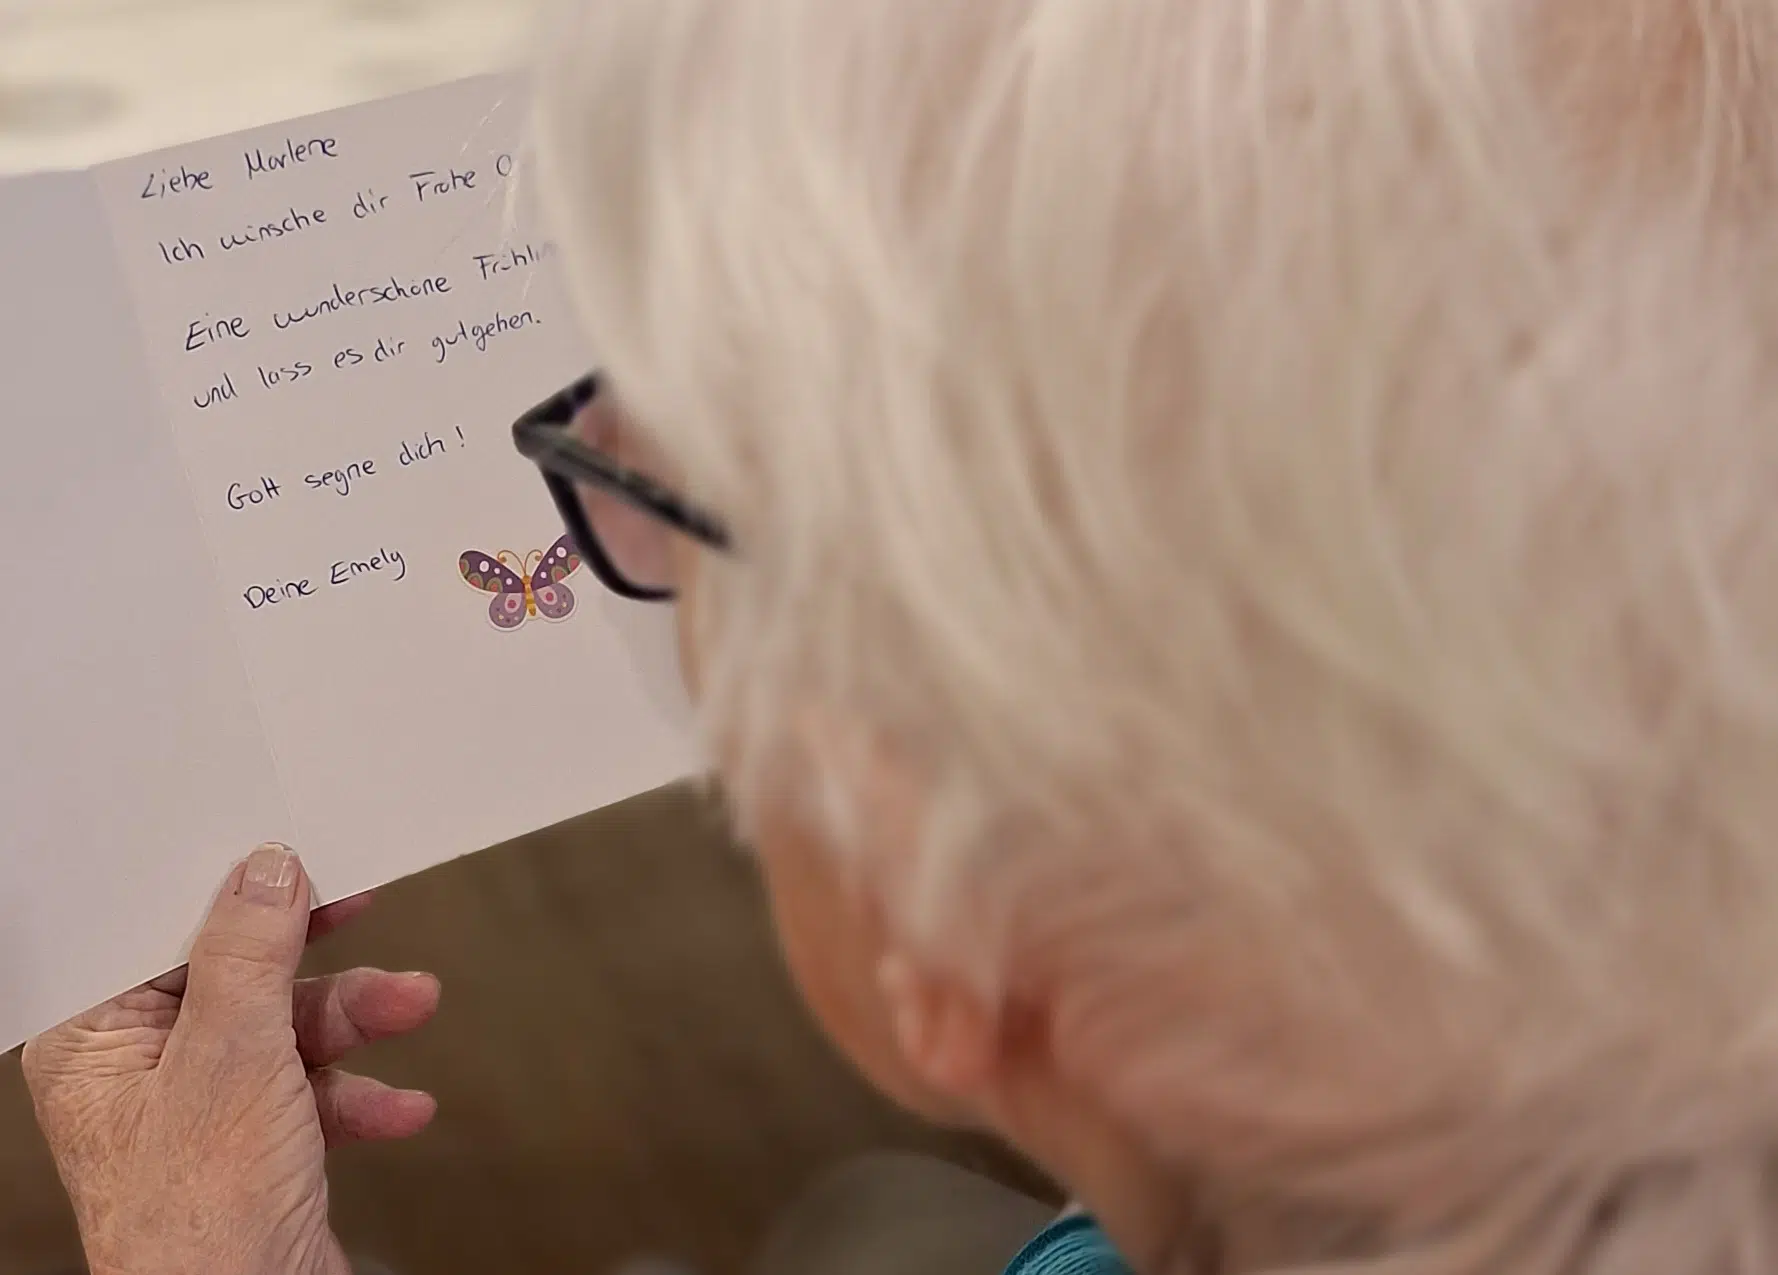 Liebe Marlene
Ich wünsche dir Frohe O
Eine wunderschöne Frühlin
und lass es dir gutgehen.
Gott segne dich!
Deine Emely